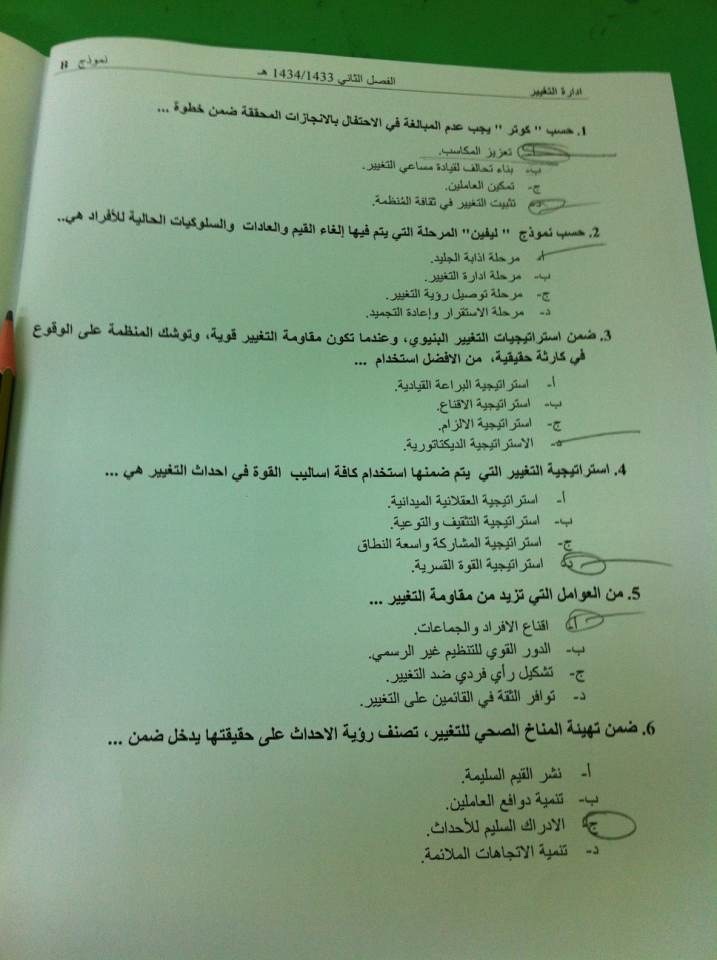 ادارة التغيير الفصل الثاني 1434/1433 هـ نموذج B
1. حسب " كوتر " يجب عدم المبالغة في الاحتفال بالانجازات المحققة ضمن خطوة ...
أ- تعزيز المكاسب.
ب- بناء تحالف لقيادة مساعي التغيير.
ج- تمكين العاملين.
د- تثبيت التغيير في ثقافة المُنظمة.
2. حسب نموذج " ليفين" المرحلة التي يتم فيها إلغاء القيم والعادات والسلوكيات الحالية للأفراد هي..
أ- مرحلة اذابة الجليد.
ب- مرحلة ادارة التغيير.
ج- مرحلة توصيل رؤية التغيير.
د- مرحلة الاستقرار وإعادة التجميد.
3. ضمن استراتيجيات التغيير البنيوي، وعندما تكون مقاومة التغيير قوية، وتوشك المنظمة على الوقوع
في كارثة حقيقية، من الافضل استخدام ...
أ- استراتيجية البراعة القيادية.
ب- استراتيجية الاقناع.
ج- استراتيجية الالزام.
د- الاستراتيجية الديكتاتورية.
4. استراتيجية التغيير التي يتم ضمنها استخدام كافة اساليب القوة في احداث التغيير هي ...
أ- استراتيجية العقلانية الميدانية.
ب- استراتيجية التثقيف والتوعية.
ج- استراتيجية المشاركة واسعة النطاق
د- استراتيجية القوة القسرية.
5. من العوامل التي تزيد من مقاومة التغيير ...
أ- اقناع الافراد والجماعات.
ب- الدور القوي للتنظيم غير الرسمي.
ج- تشكيل رأي فردي ضد التغيير.
د- توافر الثقة في القائمين على التغيير.
6. ضمن تهيئة المناخ الصحي للتغيير، تصنف رؤية الاحداث على حقيقتها يدخل ضمن ...
أ- نشر القيم السليمة.
ب- تنمية دوافع العاملين.
ج- الادراك السليم للأحداث.
د- تنمية الاتجاهات الملائمة.